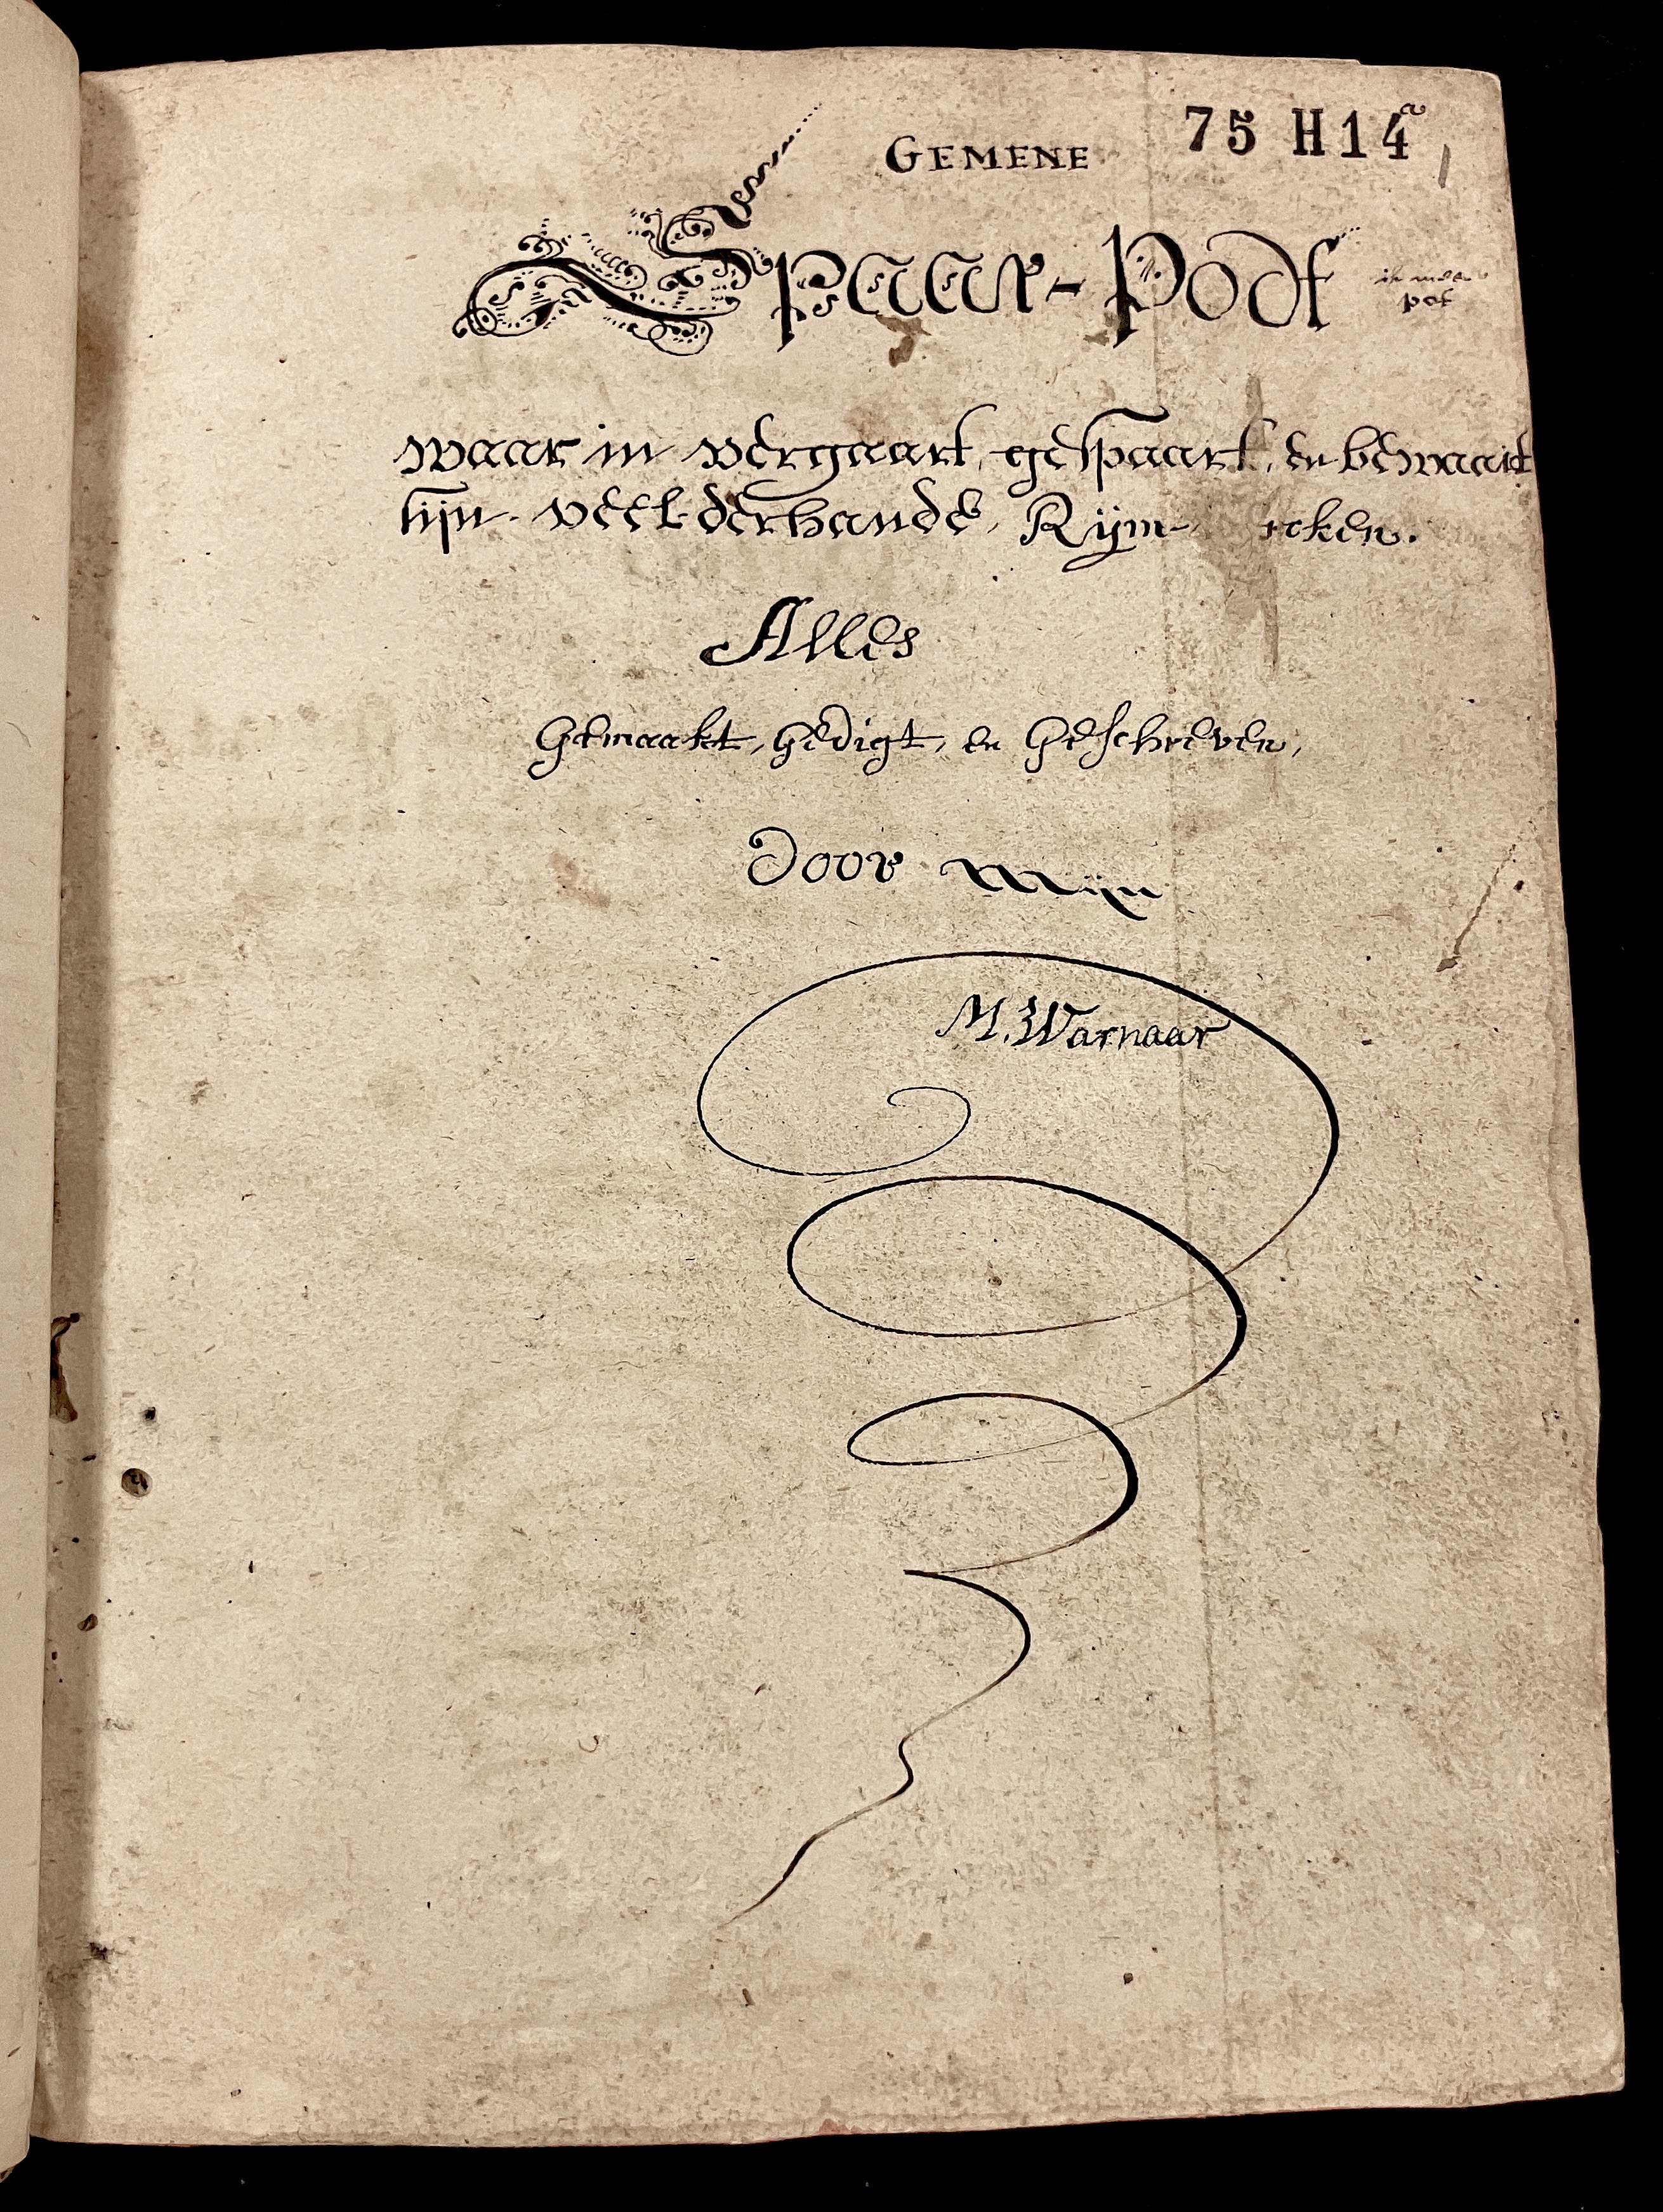 75 H14a
GEMENE
Spaar-Podt
pot
waar in vergaart, gespaart, en bewaart
sijn veel derhande, Rijm- rcken.
Alles
Gemaakt, gedigt, en Geschreven,
Door Mijn
M. Warnaar